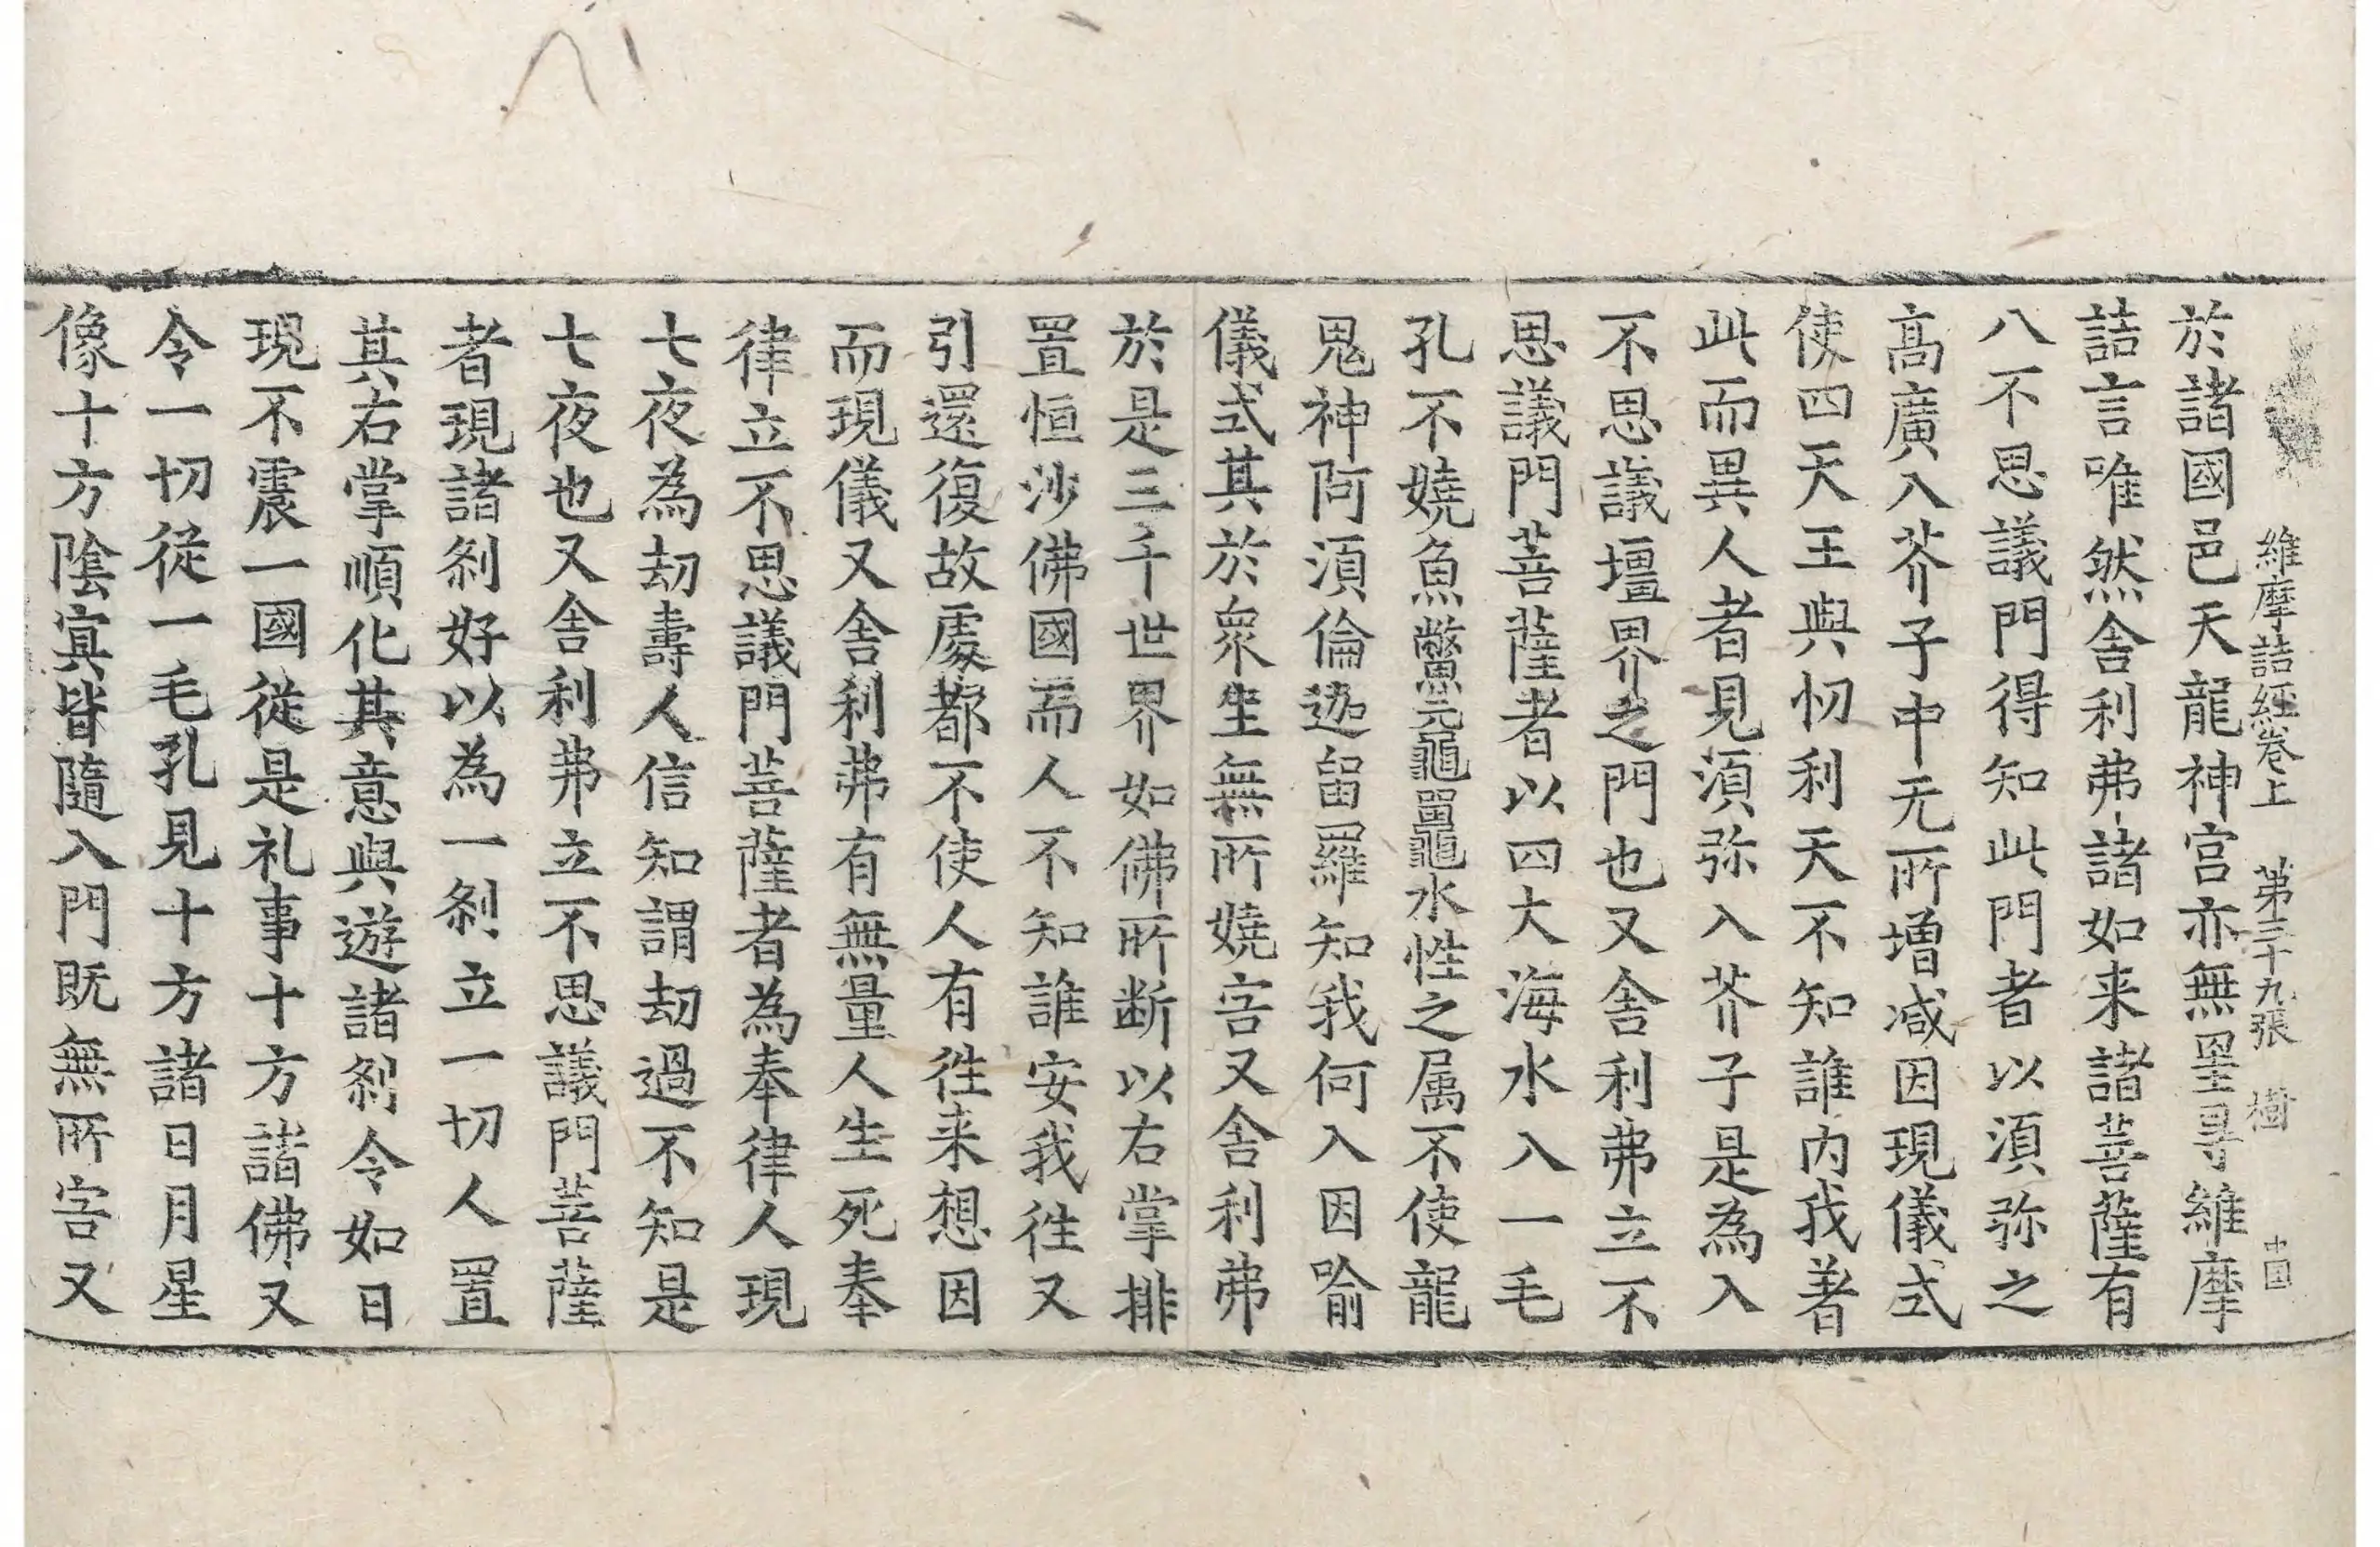 維摩詰經卷上 第三十九張 中国
於諸國邑天龍神宮亦無罣㝵維摩
詰言唯然舎利弗諸如来諸菩薩有
八不思議門得知此門者以湏弥之
髙廣入芥子中无所增減因現儀式
使四天王與忉利天不知誰内我著
此而異人者見湏弥入芥子是為入
不思議壃界之門也又舎利弗立不
思議門菩薩者以四大海水入一毛
孔不嬈魚鼈黿鼉水性之属不使龍
鬼神阿湏倫迦留羅知我何入因喻
儀式其於衆生無所嬈害又舎利弗
於是三千世界如佛所断以右掌排
置恒沙佛國而人不知誰安我往又
引還復故處都不使人有往来想因
而現儀又舎利弗有無量人生死奉
律立不思議門菩薩者為奉律人現
七夜為劫壽人信知謂劫過不知是
七夜也又舎利弗立不思議門菩薩
者現諸刹好以為一刹立一切人置
其右掌順化其意與遊諸刹令如日
現不震一國従是礼事十方諸佛又
令一切従一毛孔見十方諸日月星
像十方陰㝠皆隨入門既無所害又